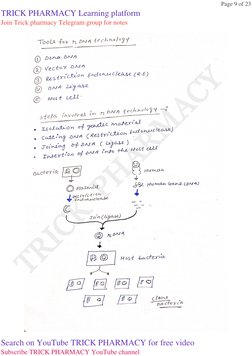 Page 9 of 23
TRICK PHARMACY Learning platform
Join Trick pharmacy Telegram group for notes
Tools for r DNA technology
① Dona DNA
② Vector DNA
③ Restriction Endonuclease (R.E)
④ DNA ligase
⑤ Host cell
steps involves in r DNA technology :-
• Isolation of genetic material
• Cutting DNA (Restriction Endonuclease)
• Joining of DNA (ligase)
• Insertion of DNA into the Host cell
Bacteria
Human
Plasmid
Human Gene (DNA)
Restriction
Endonuclease
Join (ligase)
r DNA
Host bacteria
Clone
bacteria
TRICK PHARMACY
Search on YouTube TRICK PHARMACY for free video
Subscribe TRICK PHARMACY YouTube channel